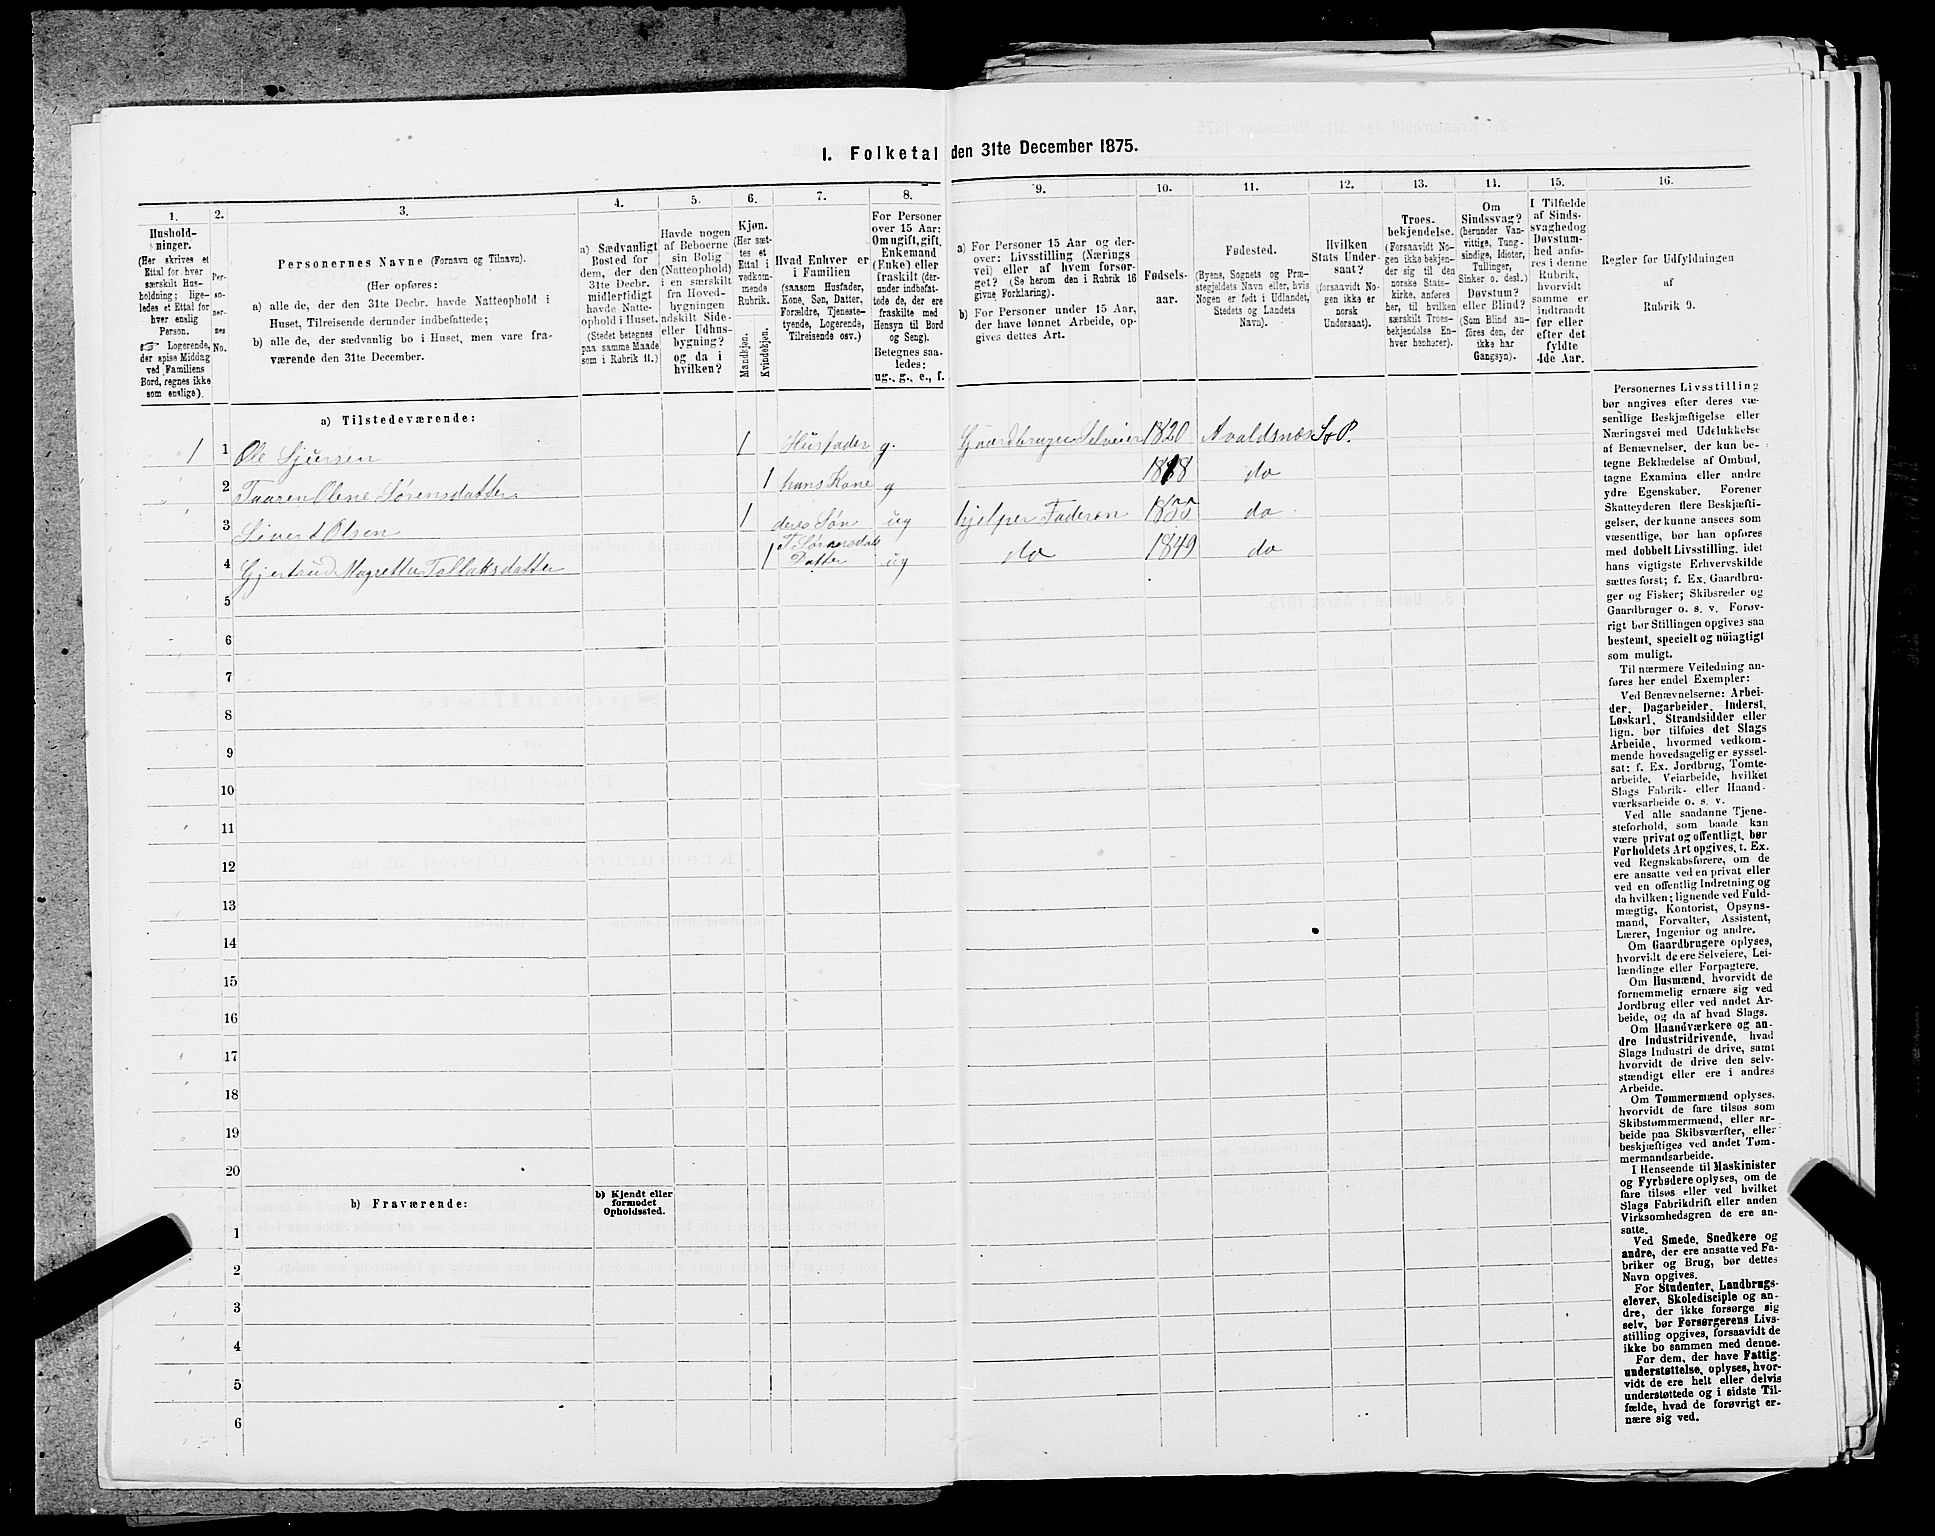 1. Folketal den 31te December 1875.
1.
2.
3.
4.
5.
6.
7.
8.
9.
10.
11.
12.
13.
14.
15.
16.
Hushold-
ninger.
(Her skrives et
Ettal for hver
særskilt Hus-
holdning; lige-
ledes et Ettal for
hver enslig
Person.
☞ Logerende,
der spise Middag
ved Familiens
Bord, regnes ikke
som enslige).
Per-
so-
ner-
nes
No.
Personernes Navne (Fornavn og Tilnavn).
(Her opføres:
a) alle de, der den 31te Decbr. havde Natteophold i
Huset, Tilreisende derunder indbefattede;
b) alle de, der sædvanlig bo i Huset, men vare fra-
værende den 31te December.
a) Sædvanligt
Bosted for
dem, der den
31te Decbr.
midlertidigt
havde Natte-
ophold i Huset.
(Stedet betegnes
paa samme Maade
som i Rubrik 11.)
Havde nogen
af Beboerne
sin Bolig
(Natteophold)
i en særskilt
fra Hoved-
bygningen
adskilt Side-
eller Udhus-
bygning?
og da i
hvilken?
Kjøn.
(Her sæt-
tes et
Ettal i
vedkom-
mende
Rubrik.
Mandkjøn.
Kvindekjøn.
Hvad Enhver er
i Familien
(saasom Husfader,
Kone, Søn, Datter,
Forældre, Tjeneste-
tyende, Logerende,
Tilreisende osv.)
For Personer
over 15 Aar:
Om ugift, gift,
Enkemand
(Enke) eller
fraskilt (der-
under indbefat-
tede de, der ere
fraskilte med
Hensyn til Bord
og Seng).
Betegnes saa-
ledes:
ug., g., e., f.
a) For Personer 15 Aar og der-
over: Livsstilling (Nærings
vei) eller af hvem forsør-
get? (Se herom den i Rubrik 16
givne Forklaring).
b) For Personer under 15 Aar,
der have lønnet Arbeide, op-
gives dettes Art.
Fødsels-
aar.
Fødested.
(Byens, Sognets og Præ-
stegjeldets Navn eller, hvis
Nogen er født i Udlandet,
Stedets og Landets
Navn).
Hvilken
Stats Under-
saat?
(forsaavidt No-
gen ikke er
norsk
Undersaat).
Troes-
bekjendelse.
(Forsaavidt No-
gen ikke bekjen-
der sig til den
norske Stats-
kirke, anføres
her, til hvilken
særskilt Troes-
bekjendelse En-
hver henhører).
Om
Sindssvag?
(herunder Van-
vittige, Tung-
sindige, Idioter,
Tullinger,
Sinker o. desl.)
Døvstum?
eller Blind?
(Som Blind an-
føres den, der
ikke har
Gangsyn).
I Tilfælde
af Sinds-
svaghed og
Døvstum-
hed anfø-
res i denne
Rubrik,
hvorvidt
samme er
indtraadt
før eller
efter det
fyldte
4de Aar.
Regler for Udfyldningen
af
Rubrik 9.
a) Tilstedeværende:
1 1 Ole Sjursen 1 Husfader g. Gaardbruger Selveier 1820 Avaldsnæs S & P.
2 Taaren Olene Sørensdatter 1 hans Kone g 1818 do
3 Sivert Olsen 1 deres Søn ug hjelper Faderen 1855 do
4 Gjertrud Magrethe Tollaksdatter 1 Datter ug do 1849 do
5
6
7
8
9
10
11
12
13
14
15
16
17
18
19
20
b) Fraværende:
b) Kjendt eller
formodet
Opholdssted.
1
2
3
4
5
6
Personernes Livsstilling
bør angives efter deres væ-
sentlige Beskjæftigelse eller
Næringsvei med Udelukkelse
af Benævnelser, der kun be-
tegne Beklædelse af Ombud,
tagne Examina eller andre
ydre Egenskaber. Forener
Skatteyderen flere Beskjæfti-
gelser, der kunne ansees som
væsentlige, bør han opføres
med dobbelt Livsstilling, idet
hans vigtigste Erhvervskilde
sættes først; f. Ex. Gaardbru-
ger og Fisker; Skibsreder og
Gaardbruger o. s. v. Forøv-
rigt bør Stillingen opgives saa
bestemt, specielt og nöiagtigt
som muligt.
Til nærmere Veiledning an-
føres her endel Exempler:
Ved Benævnelserne: Arbei-
der, Dagarbeider, Inderst,
Løskarl, Strandsidder eller
lign. bør tilføies det Slags
Arbeide, hvormed vedkom-
mende hovedsagelig er syssel-
sat; f. Ex. Jordbrug, Tomte-
arbeide, Veiarbeide, hvilket
Slags Fabrik- eller Haand-
værksarbeide o. s. v.
Ved alle saadanne Tjene-
steforhold, som baade kan
være privat og offentligt, bør
Forholdets Art opgives, t. Ex.
ved Regnskabsførere, om de
ere ansatte ved en privat eller
ved en offentlig Indretning og
da hvilken; lignende ved Fuld-
mægtig, Kontorist, Opsyns-
mand, Forvalter, Assistent,
Lærer, Ingeniør og andre.
Om Gaardbrugere oplyses,
hvorvidt de ere Selveiere, Lei-
lændinge eller Forpagtere.
Om Husmænd, hvorvidt de
fornemmelig ernære sig ved
Jordbrug eller ved andet Ar-
beide, og da af hvad Slags.
Om Haandværkere og an-
dre Industridrivende, hvad
Slags Industri de drive, samt
hvorvidt de drive den selv-
stændigt eller ere i andres
Arbeide.
Om Tømmermænd oplyses,
hvorvidt de fare tilsøs som
Skibstømmermænd, eller ar-
beide paa Skibsværfter, eller
beskjæftiges ved andet Tøm-
mermandsarbeide.
I Henseende til Maskinister
og Fyrbødere oplyses, om de
fare tilsøs eller ved hvilket
Slags Fabrikdrift eller anden
Virksomhedsgren de ere an-
satte.
Ved Smede, Snedkere og
andre, der ere ansatte ved Fa-
briker og Brug, bør dettes
Navn opgives.
For Studenter, Landbrugs-
elever, Skoledisciple og an-
dre, der ikke forsørge sig
selv, bør Forsørgerens Livs-
stilling opgives, forsaavidt de
ikke bo sammen med denne.
For dem, der have Fattig-
understøttelse, oplyses, hvor-
vidt de ere helt eller delvis
understøttede og i sidste Til-
fælde, hvad de forøvrigt er-
nære sig ved.